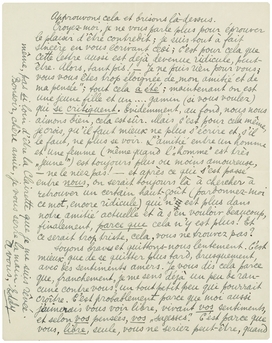 Approuvons cela et brisons là-dessus.
Croyez-moi, je ne vous parle plus pour éprouver
le plaisir d'être contredit; je suis tout à fait
sincère en vous écrivant ceci; c'est pour cela que
cette lettre aussi est déjà devenue ridicule, peut-
être. Alors, tant pis! — Je ne puis rien pour vous;
vous vous êtes trop éloignée de mon amitié et de
ma "pensée"; tout cela a été; maintenant on est
une jeune fille et un ... jamais (si vous voulez)
qui se croisent. Évidemment, au fond, nous nous
aimons bien, cela est sûr. Mais c'est pour cela même,
je crois, qu'il faut mieux ne plus s'écrire, et s'il
le faut, ne plus se voir. L'amitié entre un homme
et une femme (même quand l'homme est très
"jeune") est toujours plus ou moins amoureuse,
ne le niez pas! — et après ce que s'est passé
entre nous, on serait toujours là à chercher à
retrouver un certain haut goût (pardonnez-moi
ce mot, encore ridicule) qui n'est plus dans
notre amitié actuelle et à s'en vouloir beaucoup,
finalement, parce que cela n'y est plus. Et
ce serait trop triste, cela, vous ne trouvez pas?
Soyons braves et quittons-nous lentement. C'est
mieux que de se quitter plus tard, brusquement,
avec des sentiments amers. Je vous dis cela parce
que, franchement, je me sens déjà un peu de ran-
cune contre vous, un tout petit peu qui pourrait
croître. C'est probablement parce que moi aussi
j'aimerais vous voir libre, vivant vos sentiments,
et selon vos pensées, vos "sagesses". C'est parce que
vous, libre, seule, vous ne seriez peut-être, quand
même pas si loin d'où la
Bonsoir, chère amie, je vous